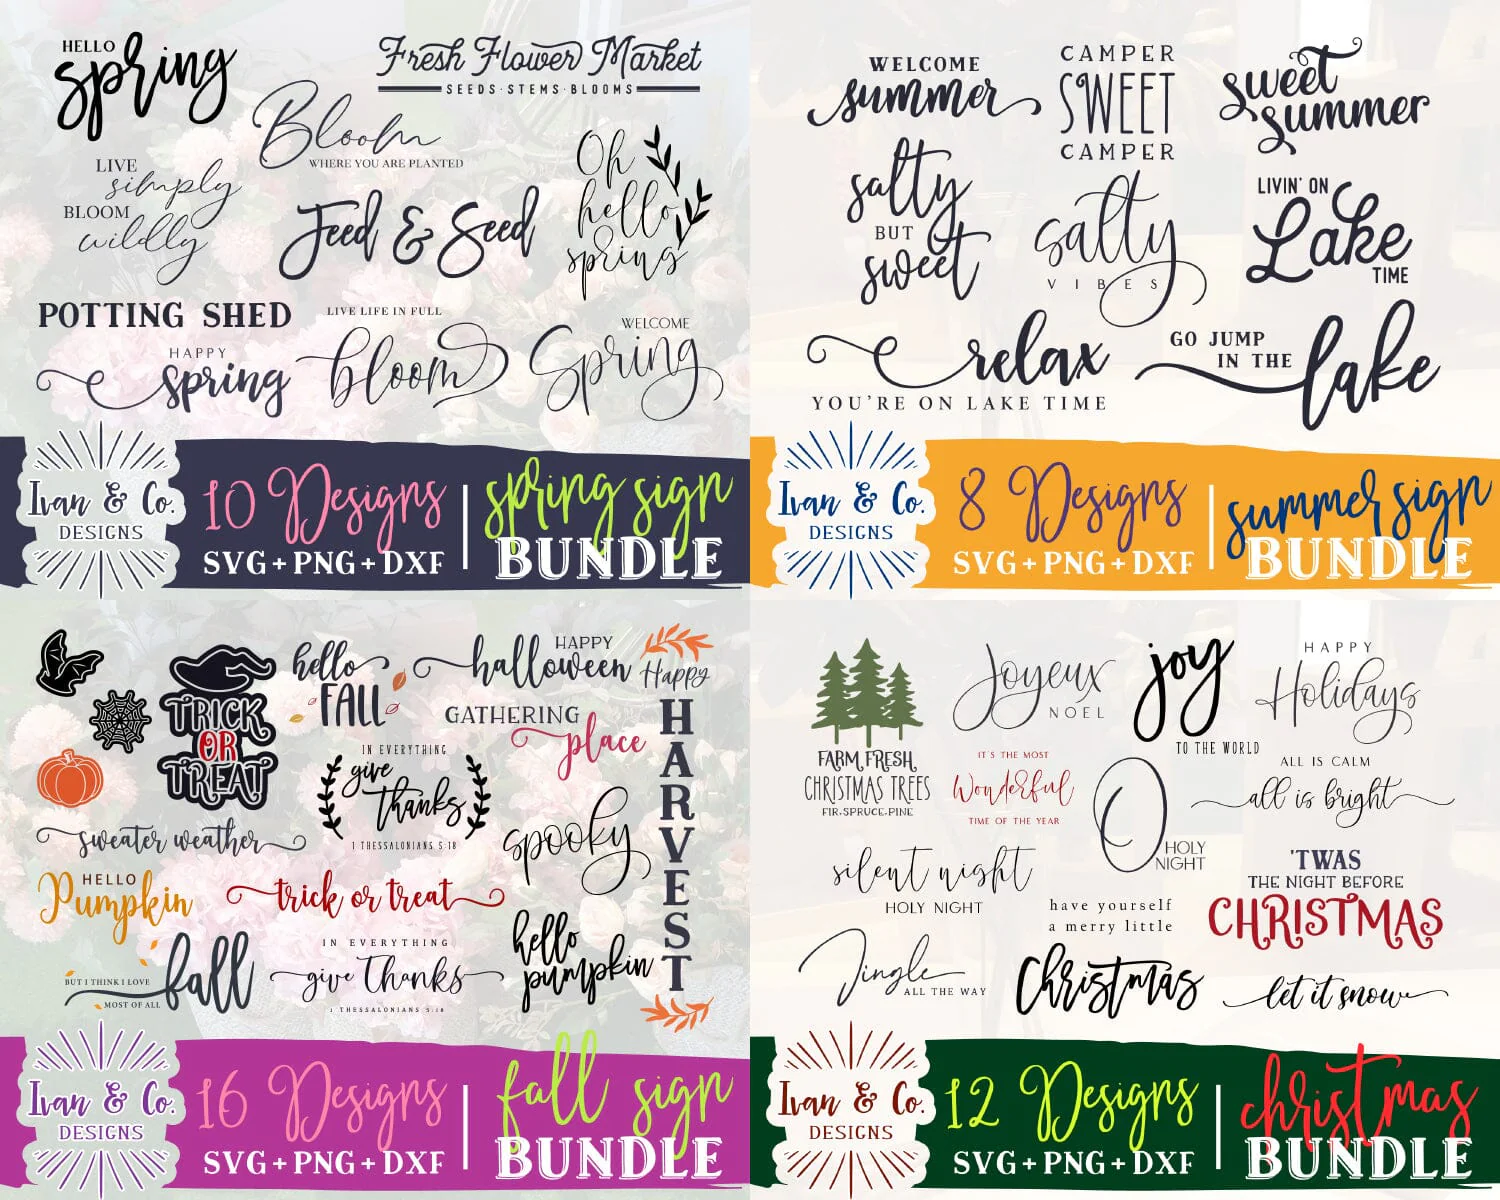 HELLO
spring
Fresh Flower Market
SEEDS·STEMS·BLOOMS
Bloom
WHERE YOU ARE PLANTED
LIVE
simply
BLOOM
wildly
Feed & Seed
Oh
hello
spring
POTTING SHED
HAPPY
spring
LIVE LIFE IN FULL
bloom
WELCOME
Spring
Ivan & Co.
DESIGNS
10 Designs
SVG+PNG+DXF
spring sign
BUNDLE
WELCOME
summer
CAMPER
SWEET
CAMPER
sweet
summer
salty
BUT
sweet
salty
VIBES
LIVIN' ON
Lake
TIME
relax
YOU'RE ON LAKE TIME
GO JUMP
IN THE
lake
Ivan & Co.
DESIGNS
8 Designs
SVG+PNG+DXF
summer sign
BUNDLE
TRICK
OR
TREAT
hello
FALL
HAPPY
halloween
Happy
HARVEST
GATHERING
place
IN EVERYTHING
give
thanks
1 THESSALONIANS 5:18
sweater weather
spooky
HELLO
Pumpkin
trick or treat
BUT I THINK I LOVE
fall
MOST OF ALL
IN EVERYTHING
give Thanks
1 THESSALONIANS 5:18
hello
pumpkin
Ivan & Co.
DESIGNS
16 Designs
SVG+PNG+DXF
fall sign
BUNDLE
FARM FRESH
CHRISTMAS TREES
FIR·SPRUCE·PINE
Joyeux
NOEL
joy
TO THE WORLD
HAPPY
Holidays
IT'S THE MOST
Wonderful
TIME OF THE YEAR
O
HOLY
NIGHT
ALL IS CALM
all is bright
silent night
HOLY NIGHT
'TWAS
THE NIGHT BEFORE
CHRISTMAS
have yourself
a merry little
Christmas
Jingle
ALL THE WAY
let it snow
Ivan & Co.
DESIGNS
12 Designs
SVG+PNG+DXF
christmas
BUNDLE